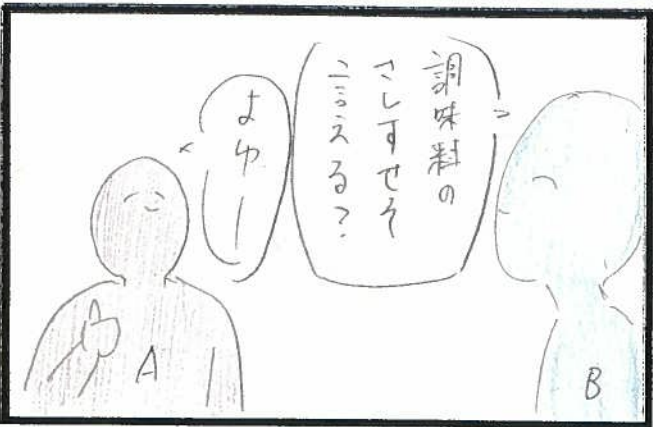 調味料の
さしすせそ
言える？
よゆー
A
B